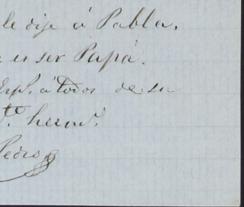 le dije á Pabla.
es ser Papá.
Esp. á todos de su
tº. hermº.
Pedro